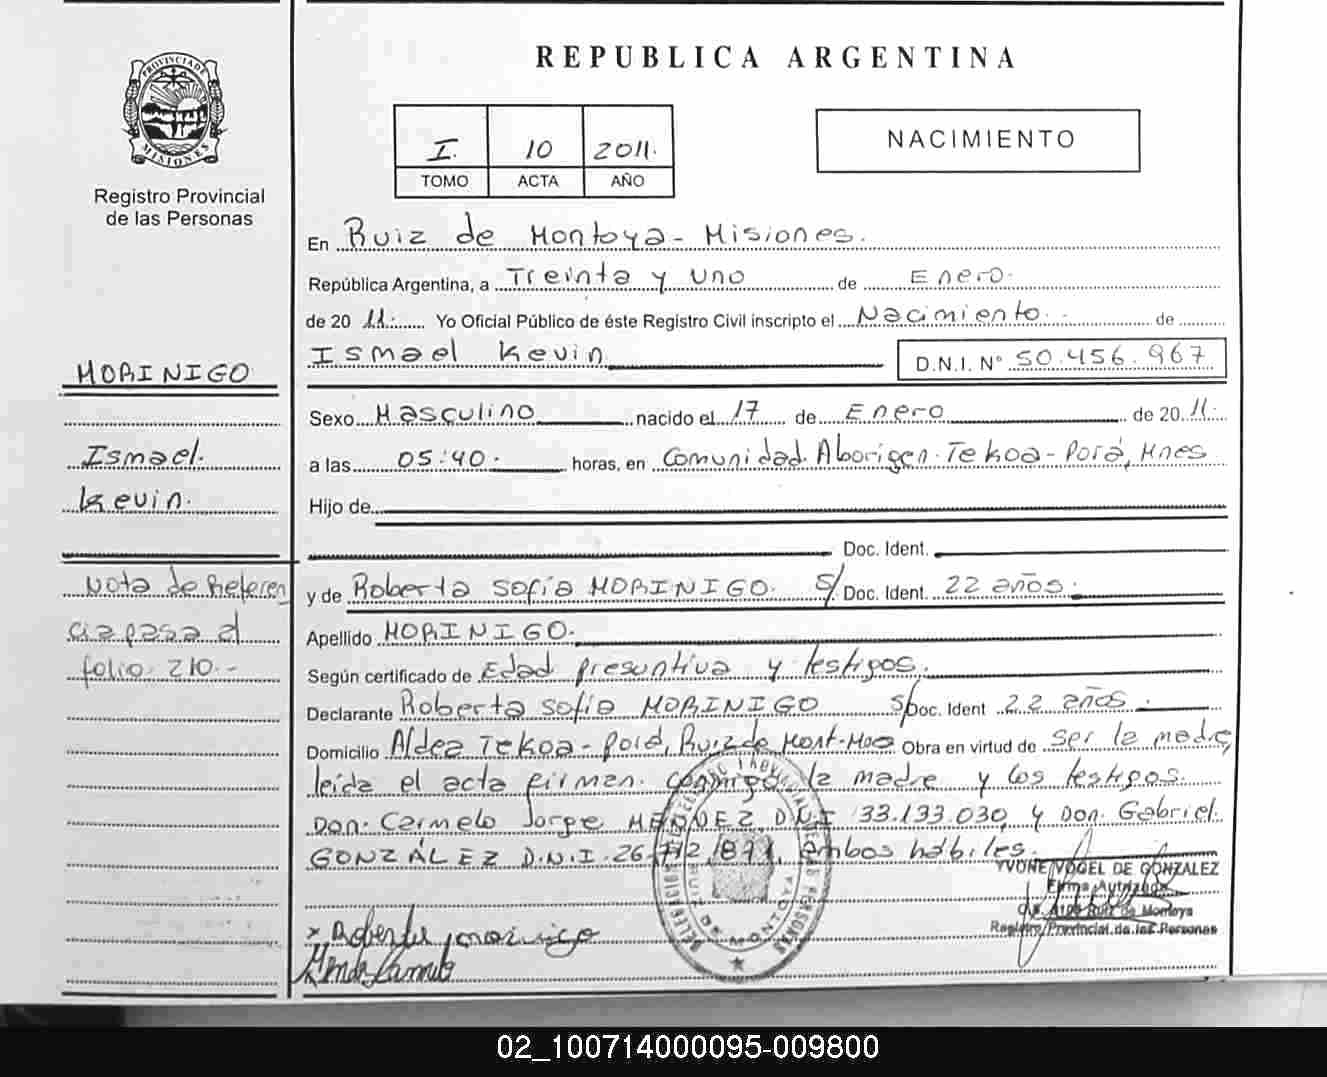 REPUBLICA ARGENTINA
PROVINCIA DE
MISIONES
Registro Provincial
de las Personas
I. 10 2011.
TOMO ACTA AÑO
NACIMIENTO
En Ruiz de Montoya - Misiones.
República Argentina, a Treinta y uno de Enero.
de 20 11. Yo Oficial Público de éste Registro Civil inscripto el Nacimiento. - de
Ismael Kevin D.N.I. N° 50.456.967
MORINIGO
Ismael.
Kevin.
Sexo Masculino nacido el 17 de Enero de 2011.
a las 05:40. horas, en Comunidad Aborigen Tekoa - Porá, Mnes
Hijo de
Doc. Ident.
Nota de Referen
cia pasa al
folio 210.-
y de Roberta Sofía MORINIGO. S/ Doc. Ident. 22 años.
Apellido MORINIGO.
Según certificado de Edad presuntiva y testigos.
Declarante Roberta Sofía MORINIGO S/ Doc. Ident 22 años.
Domicilio Aldea Tekoa - Porá, Ruiz de Mont- Obra en virtud de Ser la madre,
leída el acta firman conmigo la madre y los testigos.
Don. Carmelo Jorge MENDEZ, D.N.I 33.133.030, y Don. Gabriel.
GONZÁLEZ D.N.I. ambos hábiles.
YVONE VOGEL DE GONZALEZ
Firma Autorizada
Ruiz de Montoya
Registro Provincial de las Personas
x Roberta morinigo
02_100714000095-009800